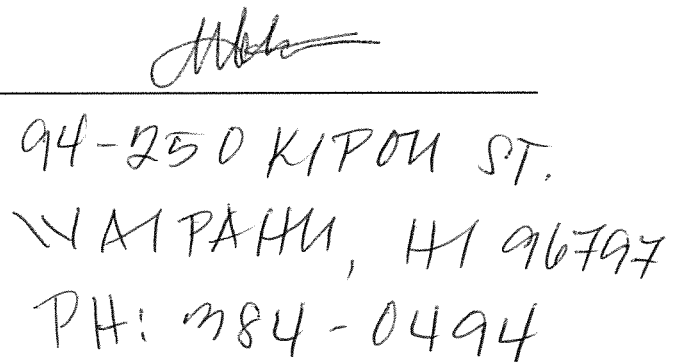 94-250 KIPOU ST.
WAIPAHU, HI 96797
PH: 384-0494